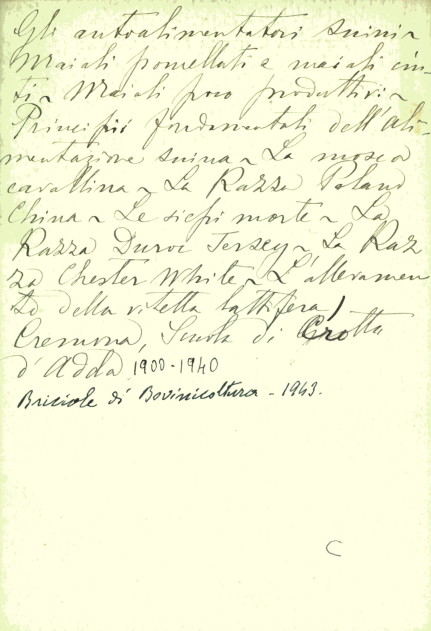 Gli autoalimentatori suini ~
Maiali pomellati e maiali cin-
ti ~ Maiali poco produttivi ~
Principii fondamentali dell'ali-
mentazione suina ~ La mosca
cavallina ~ La Razza Poland
China ~ Le siepi morte ~ La
Razza Duroc Jersey ~ La Raz
za Chester White ~ L'allevamen
to della vitella lattifera,
Cremona, Scuola di Grotta
d'Adda 1900-1940
Briciole di Bovinicoltura - 1943.
C